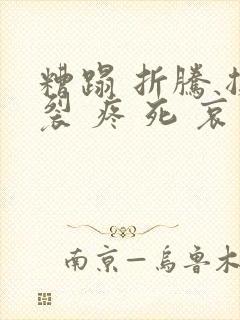 糟蹋 折騰
裂 疼 死 哀
南京－烏魯木